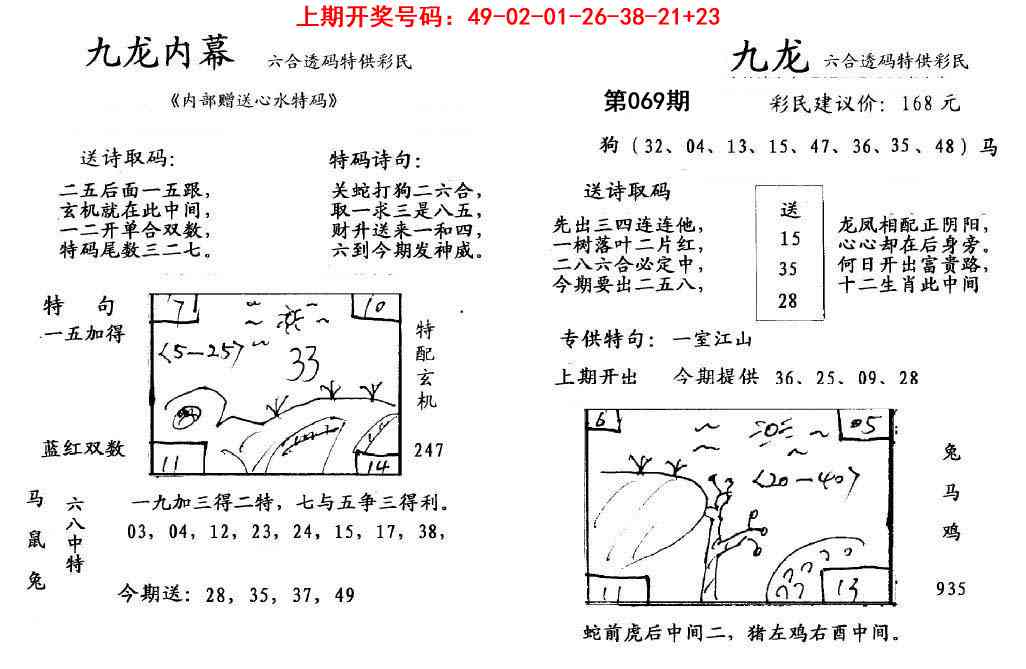 上期开奖号码：49-02-01-26-38-21+23
九龙内幕 六合透码特供彩民
《内部赠送心水特码》
送诗取码：
二五后面一五跟，
玄机就在此中间，
一二开单合双数，
特码尾数三二七。
特码诗句：
关蛇打狗二六合，
取一求三是八五，
财升送来一和四，
六到今期发神威。
特 句
一五加得
蓝红双数
7
10
〈5-25〉
33
11
14
特配玄机
247
马鼠兔
六八中特
一九加三得二特，七与五争三得利。
03，04，12，23，24，15，17，38，
今期送：28，35，37，49
九龙 六合透码特供彩民
第069期 彩民建议价：168元
狗（32、04、13、15、47、36、35、48）马
送诗取码
先出三四连连他，
一树落叶二片红，
二八六合必定中，
今期要出二五八，
送
15
35
28
龙凤相配正阴阳，
心心却在后身旁。
何日开出富贵路，
十二生肖此中间
专供特句：一室江山
上期开出 今期提供 36、25、09、28
6
5
〈20-40〉
11
13
兔
马
鸡
935
蛇前虎后中间二，猪左鸡右酉中间。